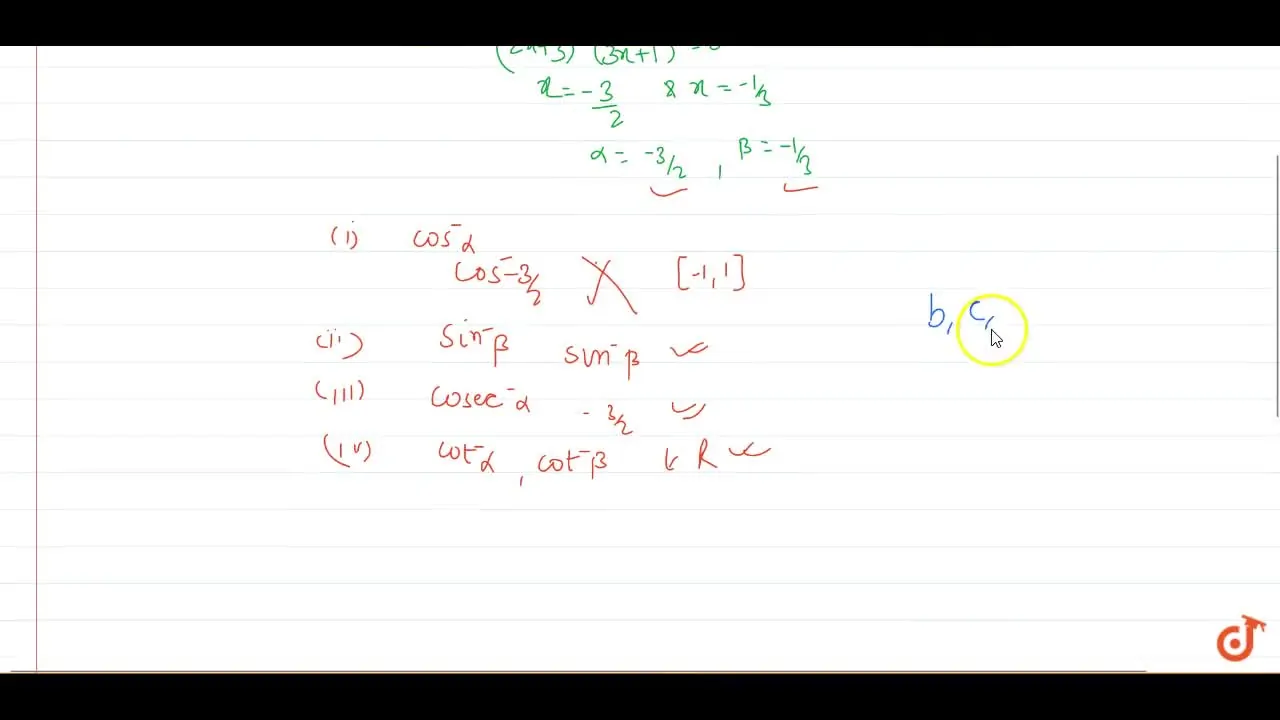 (2x+3) (3x+1) = 0
x = -3/2 & x = -1/3
α = -3/2 , β = -1/3
(i) cos⁻α
cos⁻ -3/2 [-1,1]
(ii) sin⁻β sin⁻β
(iii) cosec⁻α - 3/2
(iv) cot⁻α , cot⁻β R
b, c,